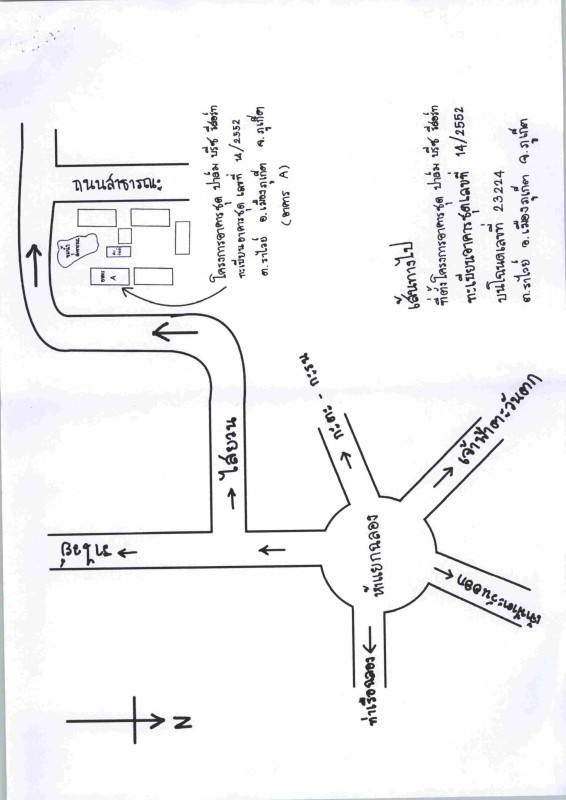 โครงการอาคารชุด ปาล์ม บรีซ รีสอร์ท
ทะเบียนอาคารชุด เลขที่ 14/2552
ต.ราไวย์ อ.เมืองภูเก็ต จ.ภูเก็ต
(อาคาร A)
ถนนสาธารณะ
อาคาร
A
เส้นทางไป
ที่ตั้งโครงการอาคารชุด ปาล์ม บรีซ รีสอร์ท
ทะเบียนอาคารชุดเลขที่ 14/2552
บนโฉนดเลขที่ 23224
ต.ราไวย์ อ.เมืองภูเก็ต จ.ภูเก็ต
ไสยวน
กะตะ - กะรน
เจ้าฟ้าตะวันตก
ห้าแยกฉลอง
เจ้าฟ้าตะวันออก
ท่าเรือฉลอง
N